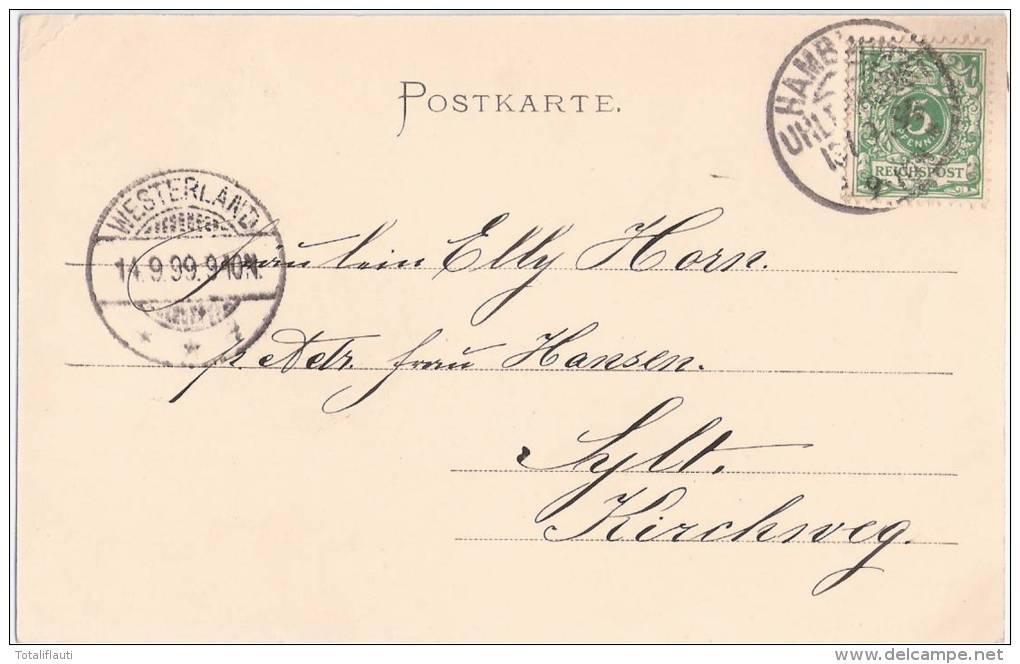 POSTKARTE.
HAMB
UHL
5
PFENNIG
REICHSPOST
WESTERLAND
9.99.9-10N.
Fräulein Elly Horn.
p. Adr. Frau Hansen.
Sylt.
Kirchweg.
Totaliflauti
delcampe.net